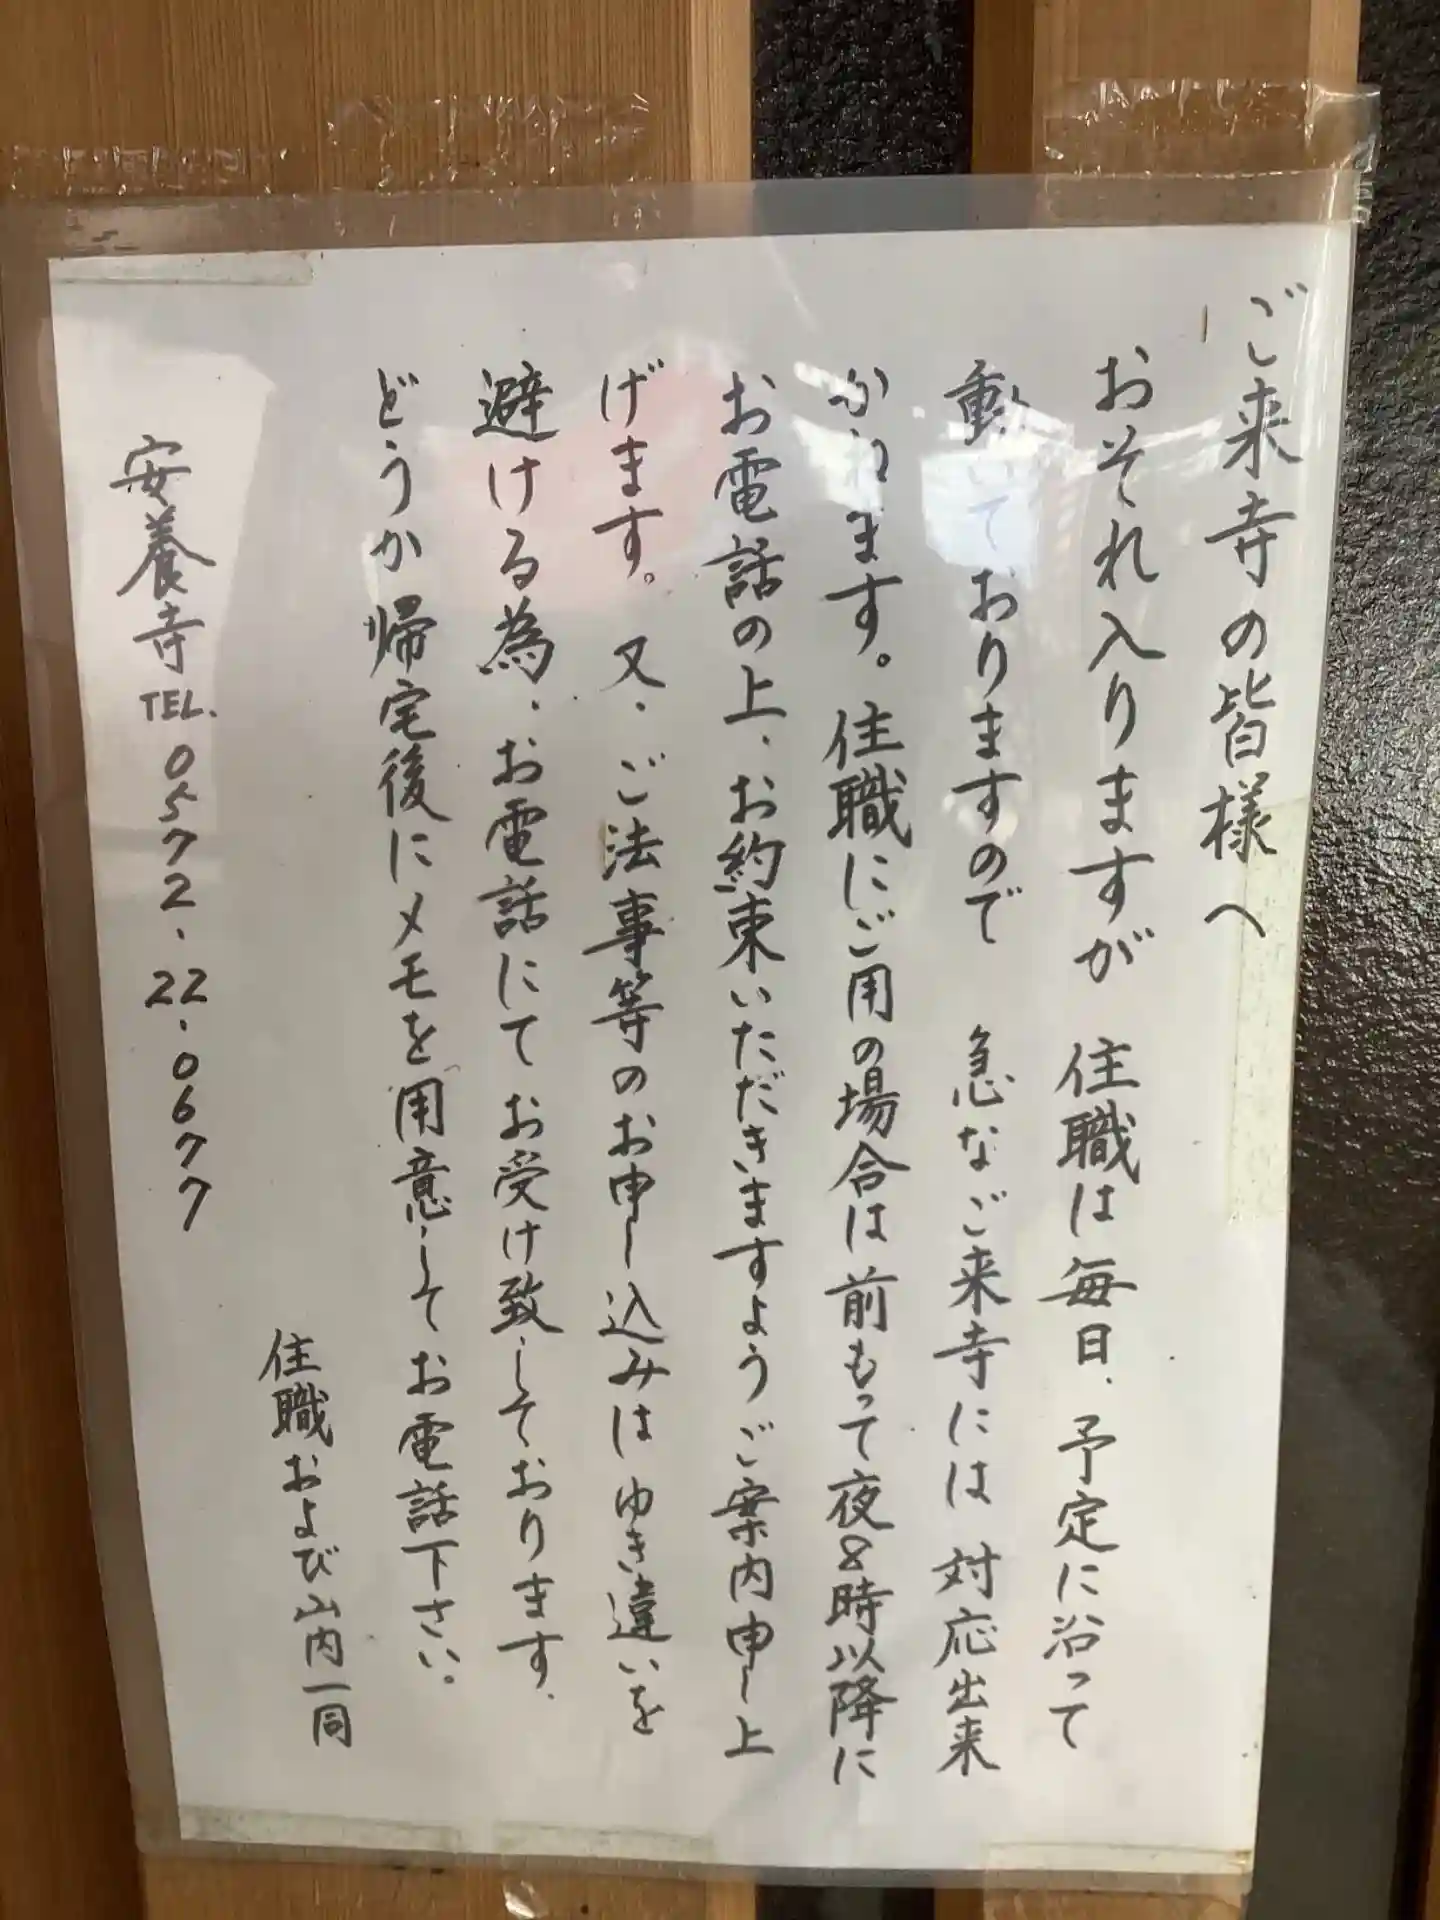 ご来寺の皆様へ
おそれ入りますが 住職は毎日、予定に沿って
動いておりますので 急なご来寺には対応出来
かねます。住職にご用の場合は前もって夜8時以降に
お電話の上、お約束いただきますようご案内申し上
げます。又、ご法事等のお申し込みはゆき違いを
避ける為、お電話にてお受け致しております、
どうか帰宅後にメモを用意してお電話下さい。
住職および山内一同
安養寺 TEL. 0572.22.0677